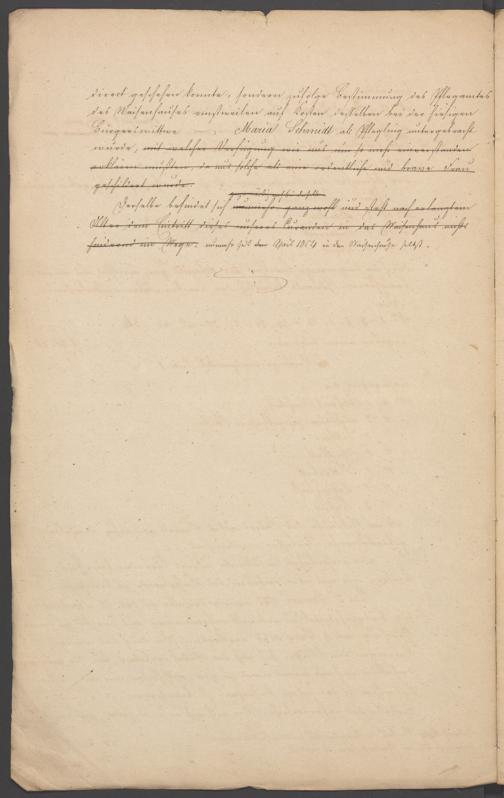 direct geschehen konnte, sondern zufolge Bestimmung des Pflegamtes
des Waisenhauses einstweilen auf Kosten desselben bei der hiesigen
Bürgerswittwe Maria Schmidt als Pflegling untergebracht
wurde, mit welcher Verfügung wir uns um so mehr einverstanden
erklären mußten, da uns solche als eine ordentliche und brave Frau
geschildert wurde.
Derselbe befindet sich nunmehr ganz wohl und steht nach erlangtem
Alter dem Eintritt dieses unseres Curanden in das Waisenhaus nichts
hindernd im Wege. nunmehr seit dem April 1854 in dem Waisenhause selbst.